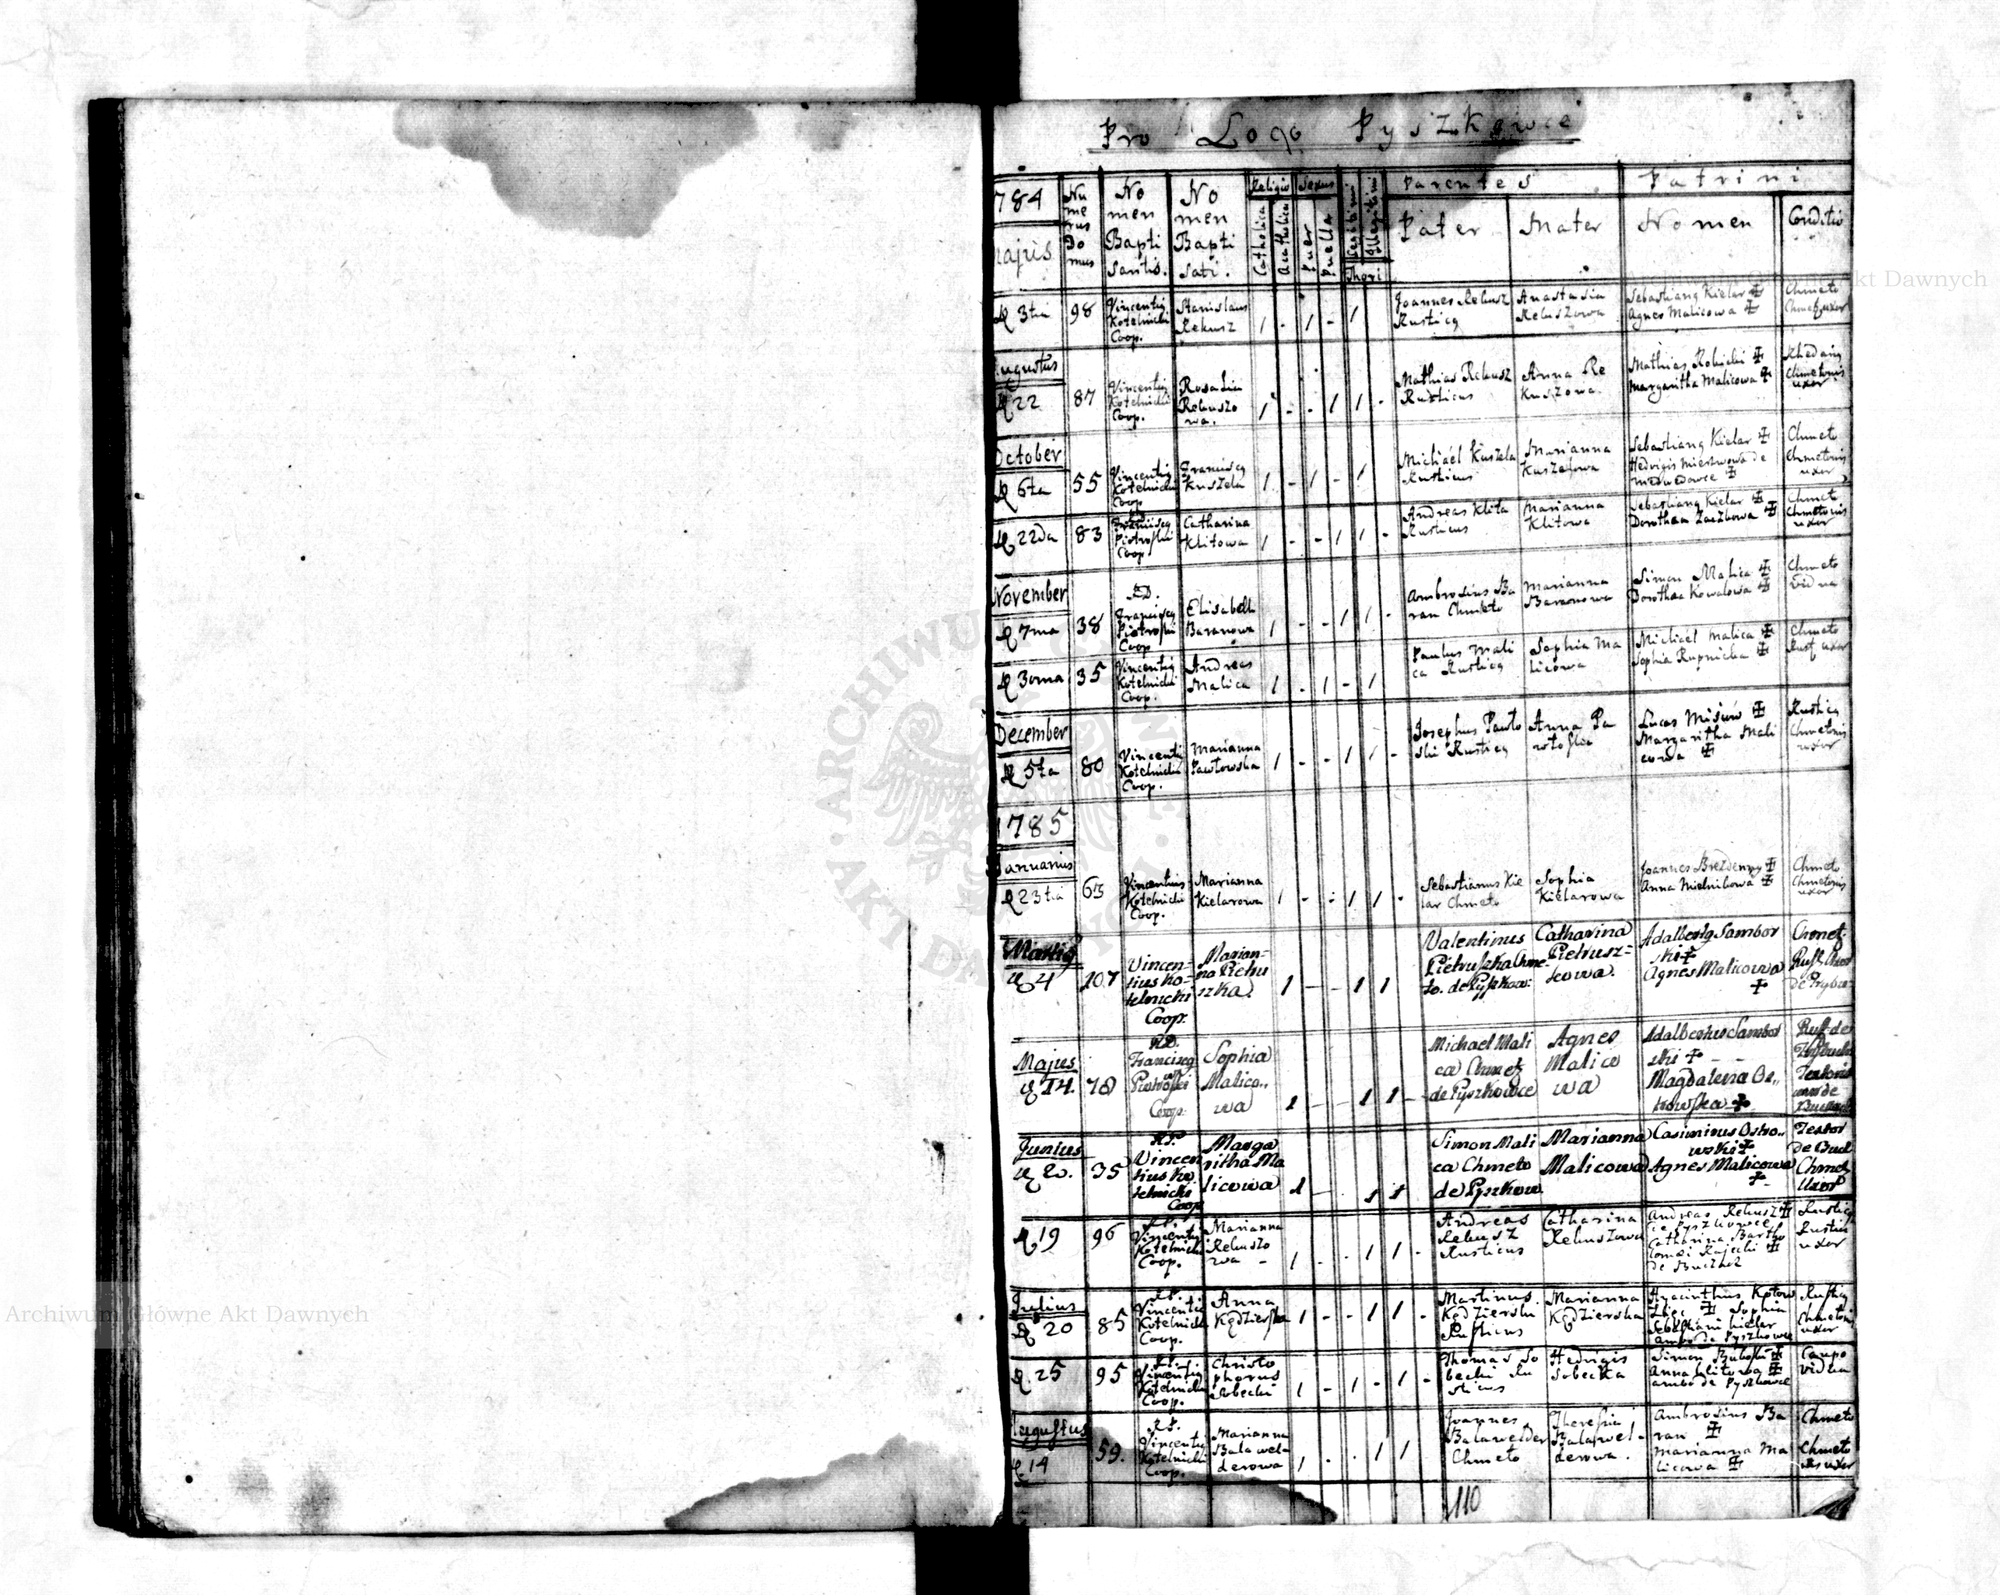 Pro Loco Pyszkowce
784 Nu me rus Do mus No men Bapti santis. No men Bapti sati. Religio Sexus Legitimi Illegitimi Parentes Patrini
Majus Catholica Acatholica Puer Puella Thori Pater Mater Nomen Conditio
Archiwum Główne Akt Dawnych
3tia 98 Vincentig Kotelnicki Coop. Stanislaus Rekusz 1 - 1 - 1 Joannes Rekusz Rusticg Anastasia Rekuszowa Sebastiang Kielar ✠ Agnes Malicowa ✠ Chmeto Chmet: uxor
Augustus
22 87 Vincentig Kotelnicki Coop. Rosalia Rekuszo wa. 1 - - 1 1 - Mathias Rekusz Rusticus Anna Re kuszowa Mathias Rolnicki ✠ Margaritha Malicowa ✠ Chmetonis uxor
October
6ta 55 Vincentig Kotelnicki Coop Franciscg Kuszela 1 - 1 - 1 Michael Kuszela Rusticus Marianna Kuszelowa Sebastiang Kielar ✠ Hedvigis de ✠ Chmeto Chmetonis uxor
22da 83 Franciscg Piotroski Coop Catharina Klitowa 1 - - 1 1 - Andreas Klita Rusticus Marianna Klitowa Sebastiang Kielar ✠ Dorothea Zaczkowa ✠ Chmeto Chmetonis uxor
November
7ma 38 Franciscg Piotroski Coop Elisabeth Baranowa 1 - - 1 1 - Ambrosius Ba ran Chmeto Marianna Baranowa Simon Malica ✠ Dorothea Kowalowa ✠ Chmeto vidua
30ma 35 Vincentig Kotelnicki Coop. Andreas Malica 1 - 1 - 1 Paulus Mali ca Rusticg Sophia Ma licowa Michael Malica ✠ Sophia Rupnicka ✠ Chmeto Rust. uxor
December
5ta 80 Vincentig Kotelnicki Coop. Marianna Pawłowska 1 - - 1 1 - Josephus Pawło ski Rusticg Anna Pa włoska Lucas ✠ Margaritha Mali cowa ✠ Rusticg Chmetonis uxor
1785
Januarius
23tia 63 Vincentius Kotelnicki Coop. Marianna Kielarowa 1 - - 1 1 - Sebastianus Kie lar Chmeto Sophia Kielarowa Joannes ✠ Anna Mielnikowa ✠ Chmeto Chmetonis uxor
Martig
4 107 Vincen- tius Ko- telnicki Coop. Marian- na Pietru szka. 1 - - 1 1 Valentinus Pietruszka Chme- to. de Pyszkow: Catharina Pietrusz- kowa. Adalbertg Sambor ski ✠ Agnes Malicowa ✠ Chmet. Rust. Uxor
Majus
14. 78 RD. Franciscg Piotroski Coop. Sophia Malico.. wa 1 - - 1 1 - Michael Mali ca Chmet. de Pyszkowce Agnes Malico wa Adalbertus Sambor ski ✠ Magdalena kowska ✠ Rust. de
Junius
2. 35 RD. Vincen tius Ko telnicki Coop Marga ritha Ma licowa 1 - 1 1 Simon Mali ca Chmeto de Pyszkow. Marianna Malicowa Casimirus Ostro.. wski ✠ Agnes Malicowa ✠ Textor Chmet. Uxor
19 96 Vincentig Kotelnicki Coop. Marianna Rekuszo wa - 1 - - 1 1 - Andreas Rekusz Rusticus Catharina Rekuszowa Andreas Rekusz ✠ de Pyszkowce Catharina ✠ Rusticg Rustici uxor
Julius
20 85 Vincentig Kotelnicki Coop. Anna Kędzierska 1 - - 1 1 - Martinus Kędzierski Rusticus Marianna Kędzierska Hyacinthus ✠ Sophia Sebastiani Kielar ambo de Pyszkowce Rusticg Chmetonis uxor
25 95 Vincentig Kotelnicki Coop. Christo phorus Sobecki 1 - 1 - 1 - Thomas So becki Ru sticus Hedvigis Sobecka Simon ✠ Anna Klitowa ✠ ambo de Pyszkowce Caupo vidua
Augustus
14 59. Vincentig Kotelnicki Coop. Marianna Balawel- derowa 1 - - 1 1 Joannes Balawelder Chmeto Theresia Balawel- derowa. Ambrosius Ba ran ✠ Marianna Ma licowa ✠ Chmeto Chmeto nis uxor
110
ARCHIWUM GŁÓWNE AKT DAWNYCH
Archiwum Główne Akt Dawnych